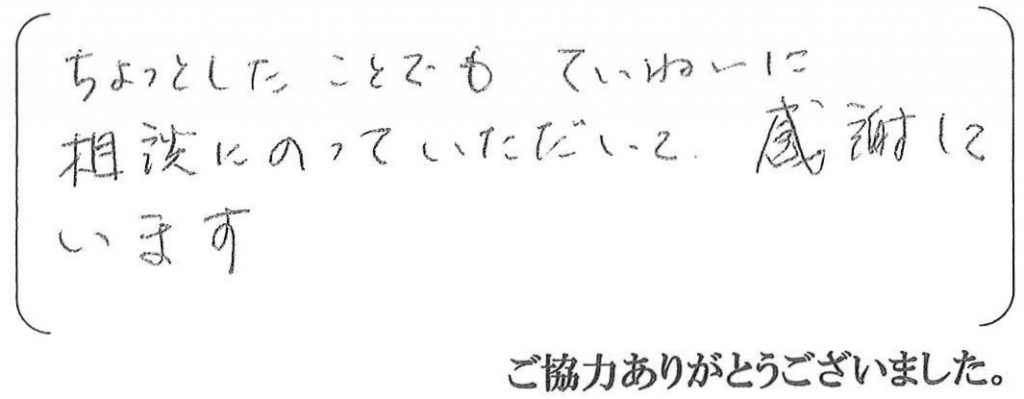 ちょっとした ことでも ていねいに
相談にのっていただいて 感謝して
います
ご協力ありがとうございました。